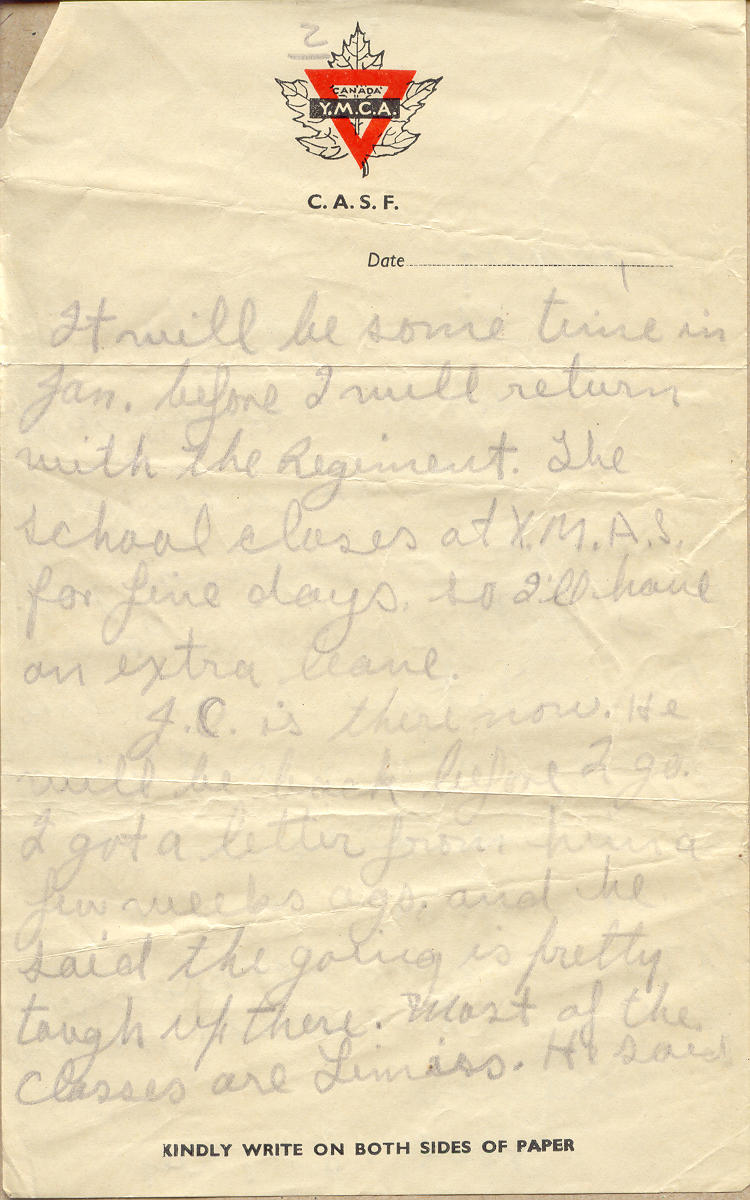 2
CANADA
Y.M.C.A.
C. A. S. F.
Date
It will be some time in
Jan. before I will return
with the Regiment. The
school closes at X.M.A.S.
for five days. so I'll have
an extra leave.
J.C. is there now. He
will be back before I go.
I got a letter from him a
few weeks ago. and he
said the going is pretty
tough up there. Most of the
Classes are. He said
KINDLY WRITE ON BOTH SIDES OF PAPER